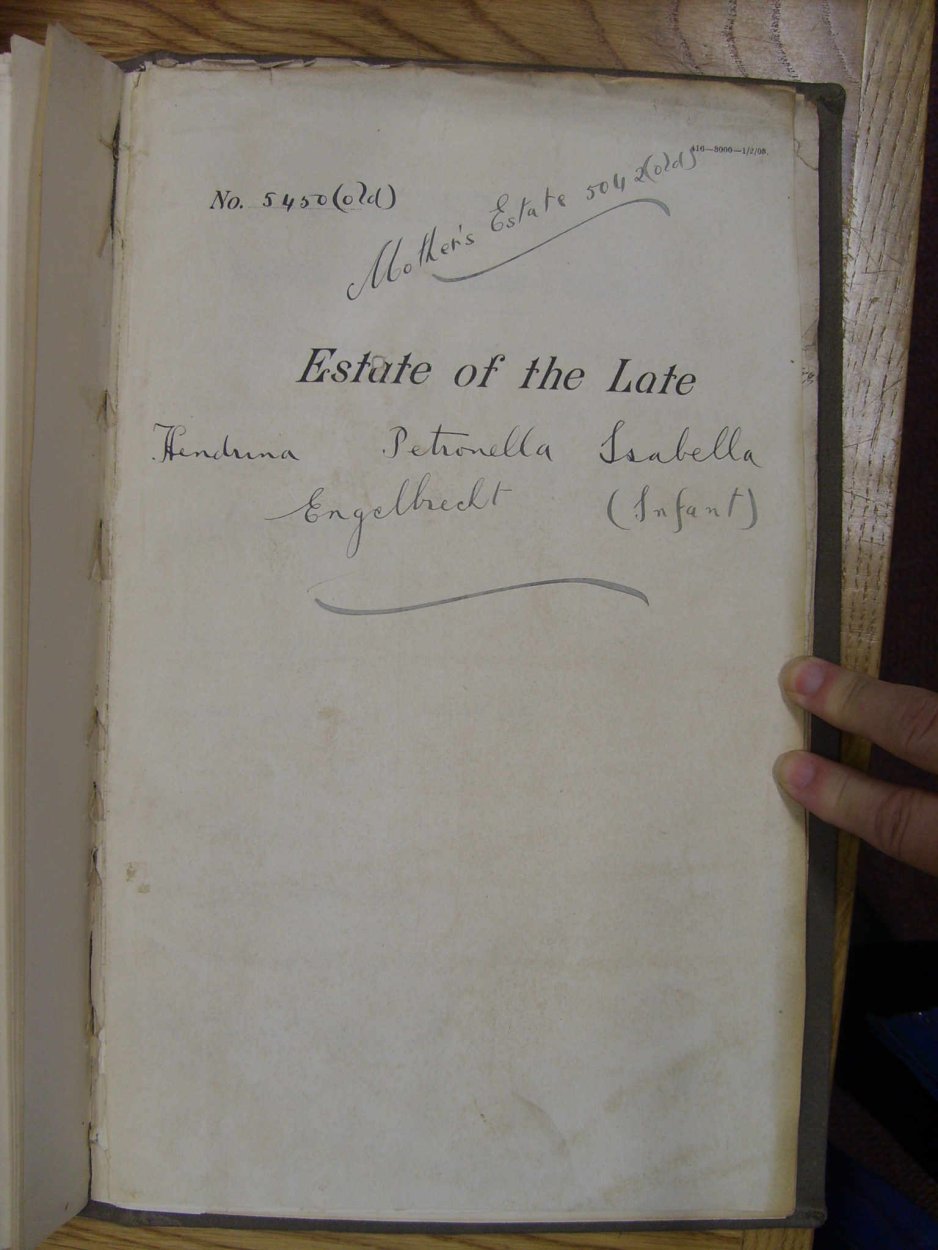 416—8000—1/2/06.
No. 5450 (old)
Mother's Estate 5042 (old)
Estate of the Late
Hendrina Petronella Isabella
Engelbrecht (Infant)